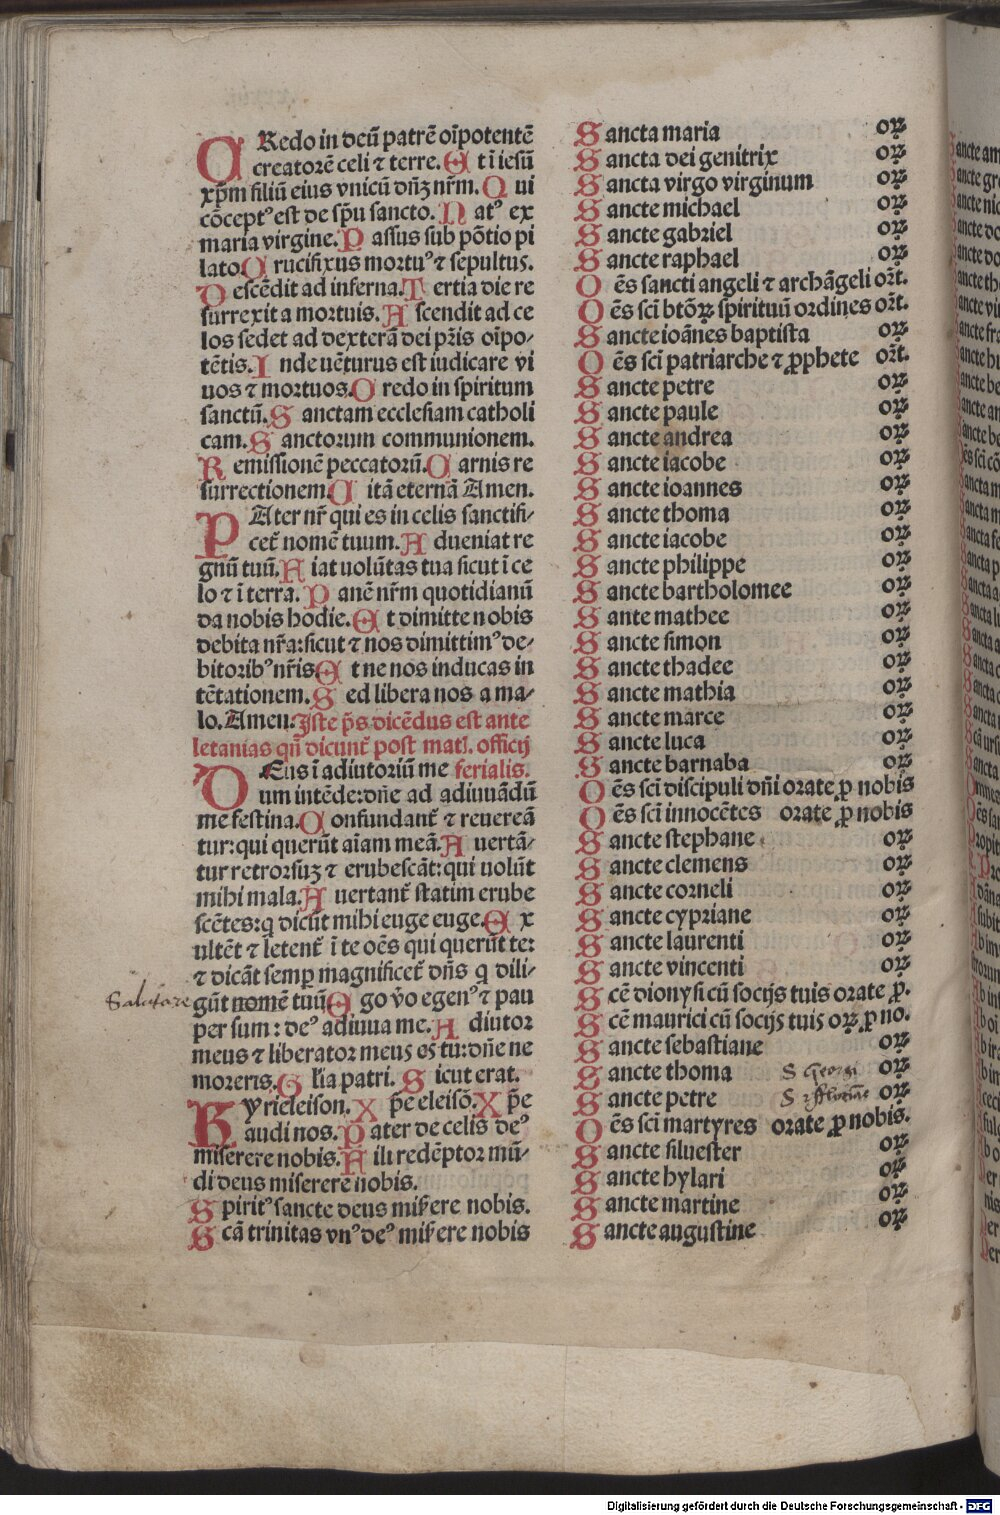 CRedo in deū patrē oīpotentē
creatorē celi ⁊ terre. Et ī iesū
xp̄m filiū eius vnicū dn̄ꝫ nr̄m. Qui
cōceptꝰ est de sp̄u sancto. Natꝰ ex
maria virgine. Passus sub pōtio pi
lato. Crucifixus mortuꝰ ⁊ sepultus.
Descēdit ad inferna. Tertia die re
surrexit a mortuis. Ascendit ad ce
los sedet ad dexterā dei pr̄is oīpo-
tētis. Inde uēturus est iudicare vi
uos ⁊ mortuos. Credo in spiritum
sanctū. Sanctam ecclesiam catholi
cam. Sanctorum communionem.
Remissionē peccatorū. Carnis re
surrectionem. Uitā eternā Amen.
PAter nr̄ qui es in celis sanctifi-
cet̄ nomē tuum. Adueniat re
gnū tuū. Fiat uolūtas tua sicut ī ce
lo ⁊ ī terra. Panē nr̄m quotidianū
da nobis hodie. Et dimitte nobis
debita nr̄a: sicut ⁊ nos dimittimꝰ de-
bitoribꝰ nr̄is Et ne nos inducas in
tētationem. Sed libera nos a ma-
lo. Amen: Iste p̄s dicēdus est ante
letanias qn̄ dicunt̄ post mat̄. officij
ferialis.
DEus ī adiutoriū me
um intēde: dn̄e ad adiuuādū
me festina. Confundant̄ ⁊ reuereā
tur: qui querūt aīam meā. Auertā-
tur retrorsuꝫ ⁊ erubescāt: qui uolūt
mihi mala. Auertant̄ statim erube
scētes: q̄ dicūt mihi euge euge. Ex
ultēt ⁊ letent̄ ī te oēs qui querūt te:
⁊ dicāt semꝑ magnificet̄ dn̄s q̄ dili-
Salutare
gūt nomē tuū Ego v̄o egenꝰ ⁊ pau
per sum: deꝰ adiuua me. Adiutor
meus ⁊ liberator meus es tu: dn̄e ne
moreris. Glīa patri. Sicut erat.
KYrieleison. Xp̄e eleisō. Xp̄e
audi nos. Pater de celis deꝰ
miserere nobis. Fili redēptor mū-
di deus miserere nobis.
Spiritꝰ sancte deus mis̄ere nobis.
Scā trinitas vnꝰ deꝰ mis̄ere nobis
Sancta maria oꝝ
Sancta dei genitrix oꝝ
Sancta virgo virginum oꝝ
Sancte michael oꝝ
Sancte gabriel oꝝ
Sancte raphael oꝝ
Oēs sancti angeli ⁊ archāgeli or̄t.
Oēs sci btōꝝ spirituū ordines or̄t.
Sancte ioānes baptista oꝝ
Oēs sci patriarche ⁊ ꝓphete or̄t.
Sancte petre oꝝ
Sancte paule oꝝ
Sancte andrea oꝝ
Sancte iacobe oꝝ
Sancte ioannes oꝝ
Sancte thoma oꝝ
Sancte iacobe oꝝ
Sancte philippe oꝝ
Sancte bartholomee oꝝ
Sante mathee oꝝ
Sancte simon oꝝ
Sancte thadee oꝝ
Sancte mathia oꝝ
Sancte marce oꝝ
Sancte luca oꝝ
Sancte barnaba oꝝ
Oēs sci discipuli dn̄i orate ꝓ nobis
Oēs sci innocētes orate ꝓ nobis
Sancte stephane oꝝ
Sancte clemens oꝝ
Sancte corneli oꝝ
Sancte cypriane oꝝ
Sancte laurenti oꝝ
Sancte vincenti oꝝ
Scē dionysi cū socijs tuis orate ꝓ.
Scē maurici cū socijs tuis oꝝ ꝓ no.
Sancte sebastiane oꝝ
Sancte thoma S Georgi oꝝ
Sancte petre S oꝝ
Oēs sci martyres orate ꝓ nobis.
Sancte siluester oꝝ
Sancte hylari oꝝ
Sancte martine oꝝ
Sancte augustine oꝝ
Digitalisierung gefördert durch die Deutsche Forschungsgemeinschaft - DFG